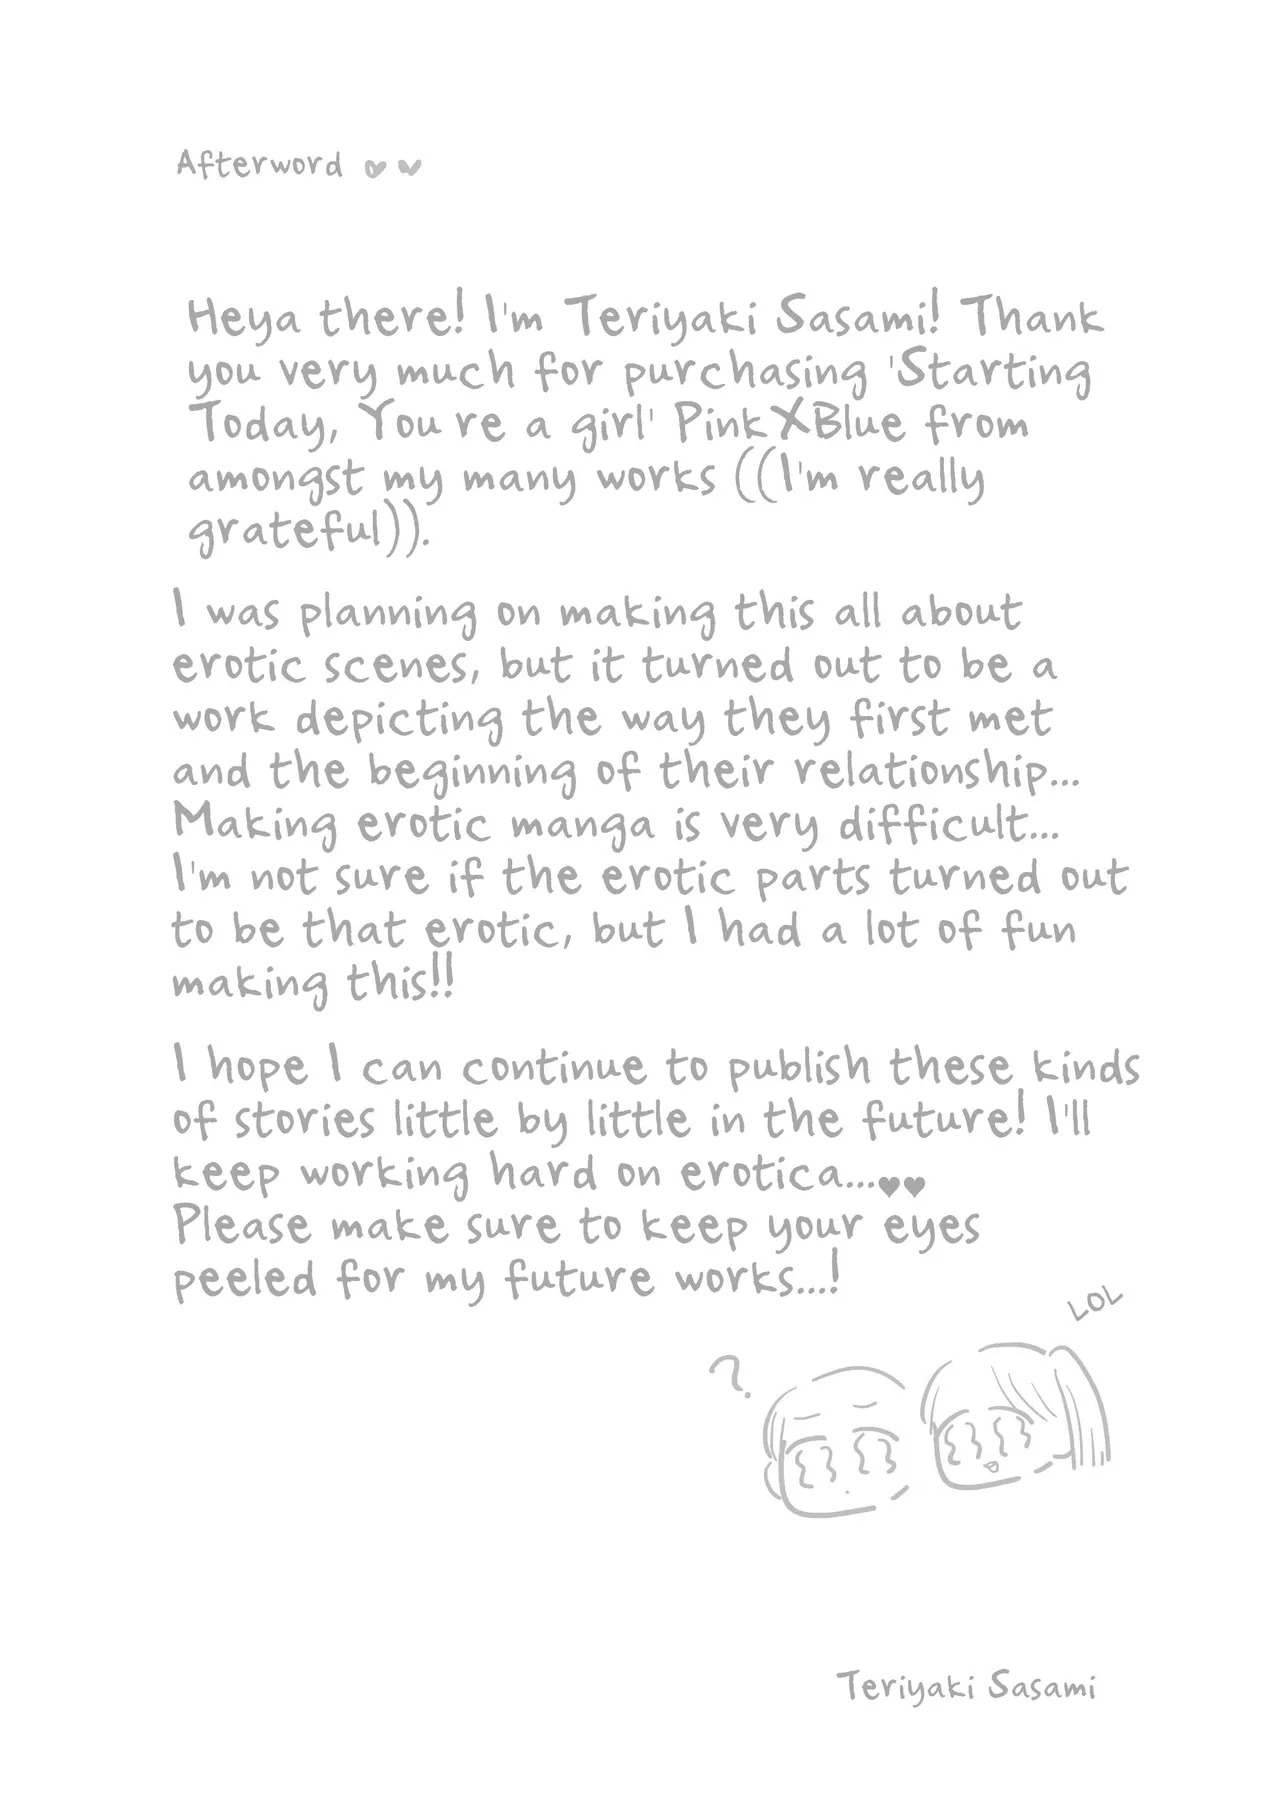 Afterword ♥♥
Heya there! I'm Teriyaki Sasami! Thank
you very much for purchasing 'Starting
Today, You re a girl' PinkXBlue from
amongst my many works ((I'm really
grateful)).
I was planning on making this all about
erotic scenes, but it turned out to be a
work depicting the way they first met
and the beginning of their relationship...
Making erotic manga is very difficult...
I'm not sure if the erotic parts turned out
to be that erotic, but I had a lot of fun
making this!!
I hope I can continue to publish these kinds
of stories little by little in the future! I'll
keep working hard on erotica...♥♥
Please make sure to keep your eyes
peeled for my future works...!
LOL
?
Teriyaki Sasami